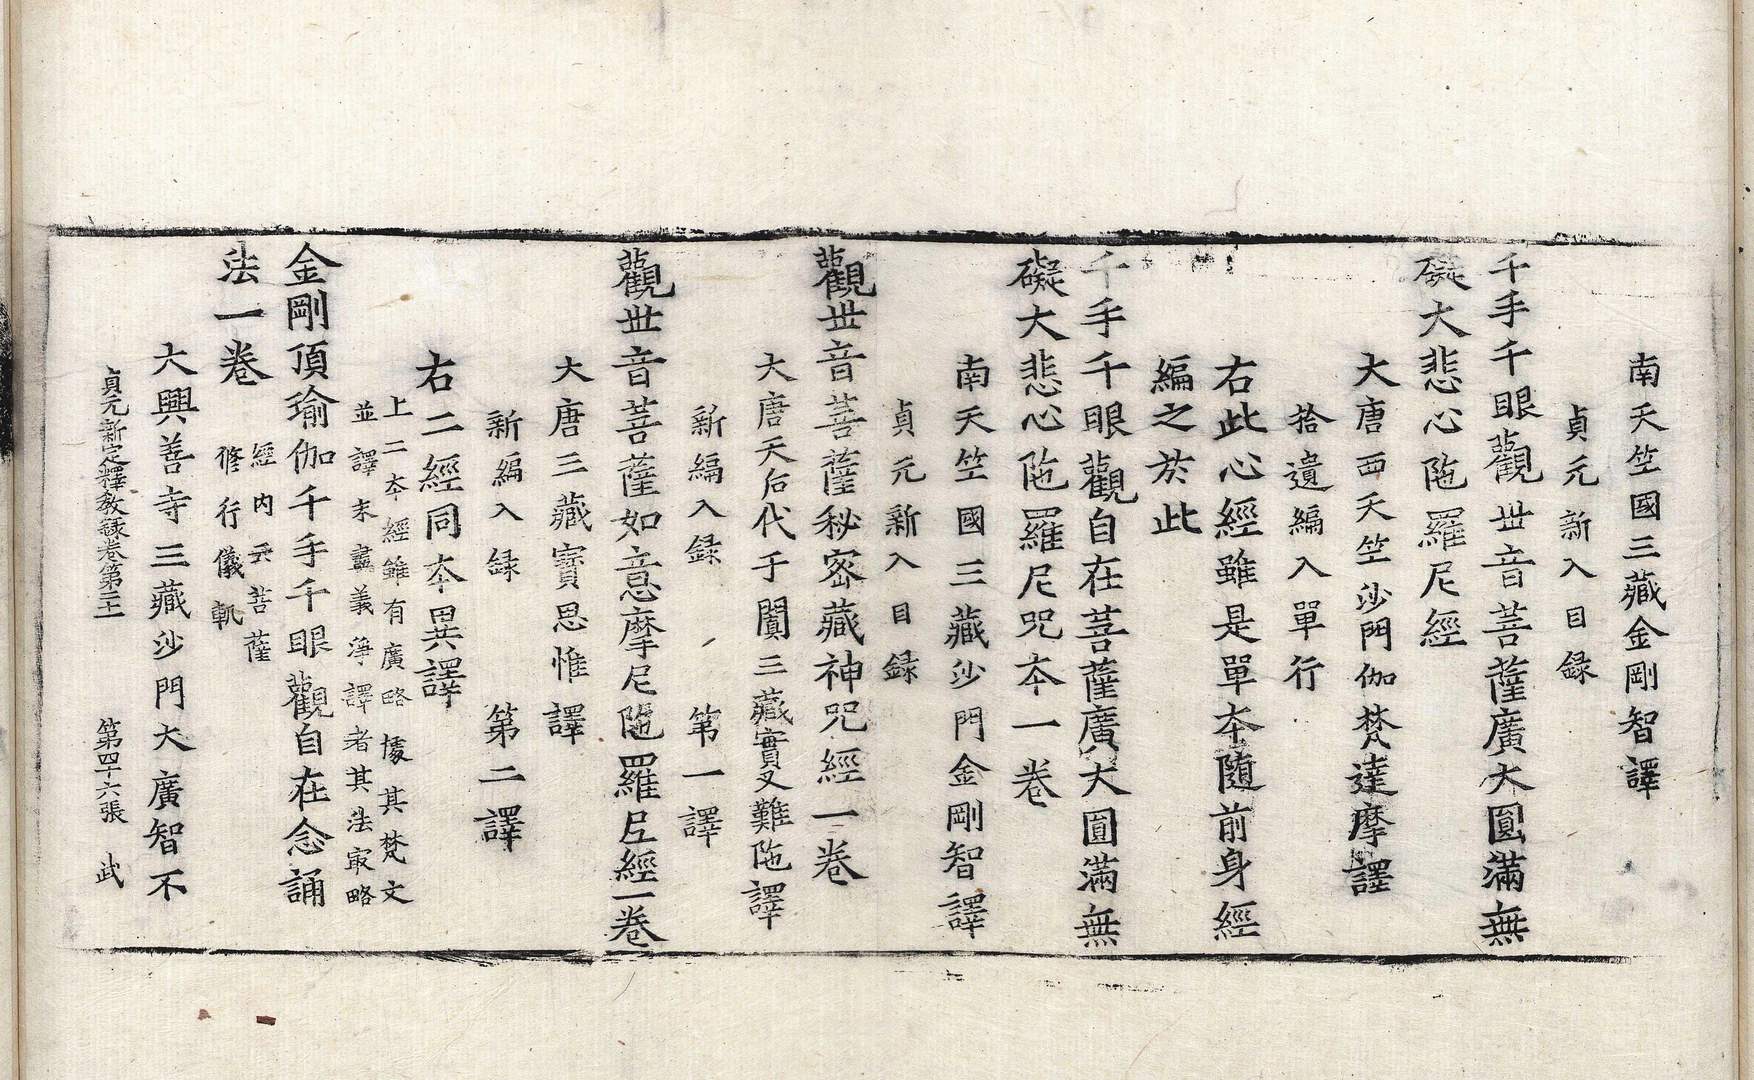 南天竺國三藏金剛智譯
貞元新入目録
千手千眼觀世音菩薩廣大圓滿無
礙大悲心陁羅尼經
大唐西天竺沙門伽梵達摩譯
拾遺編入單行
右此心經雖是單夲隨前身經
編之於此
千手千眼觀自在菩薩廣大圓滿無
礙大悲心陁羅尼咒夲一卷
南天竺國三藏沙門金剛智譯
貞元新入目録
觀世音菩薩秘密藏神咒經一卷
大唐天后代于闐三藏實叉難陁譯
新編入録 第一譯
觀世音菩薩如意摩尼陁羅尼經一卷
大唐三藏寶思惟譯
新編入録 第二譯
右二經同夲異譯
上二夲經雖有廣略據其梵文
並譯未盡義淨譯者其法㝡略
金剛頂瑜伽千手千眼觀自在念誦
法一卷
經内云菩薩
修行儀軌
大興善寺三藏沙門大廣智不
貞元新定釋教録卷第二十一 第四十六張 武